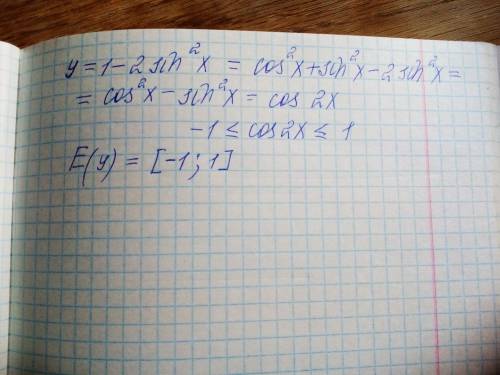 y = 1 - 2 sin²x = cos²x + sin²x - 2 sin²x =
= cos²x - sin²x = cos 2x
-1 ≤ cos2x ≤ 1
E(y) = [-1; 1]